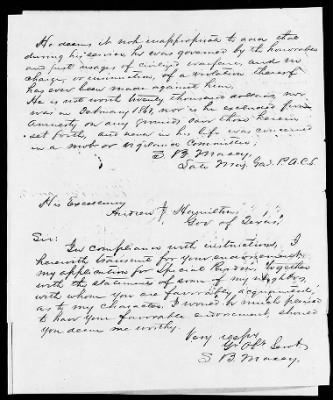 He deems it not inappropriate to aver that
during his service he was governed by the honorable
and just usages of civilized warfare, and no
charge, or insinuation, of a violation thereof
has ever been made against him.
He is not worth twenty thousand dollars, nor
was in February 1861, nor is he excluded from
amnesty on any grounds save those herein
set forth, and never in his life was concerned
in a mob or vigilance Committee;
S B Maxey,
Late Maj. Genl. P.A.C.S.
His Excellency
Andrew J Hamilton,
Gov of Texas:
Sir:
In compliance with instructions, I
herewith transmit for your endorsement
my application for Special Pardon, together
with the statements of some of my neighbors,
with whom you are favorably acquainted,
as to my character. I would be much pleased
to had your favorable endorsement, should
you deem me worthy.
Very respy
Yr Obt Servt
S B Maxey.